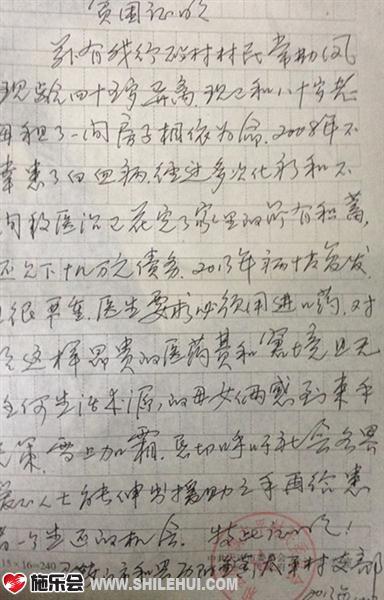 贫困证明
兹有我行政村村民常
现龄四十五岁离异,现已和八十岁老
母租了一间房子相依为命.2008年不
幸患了白血病,经过多次化疗和不
间段医治已花完了家里的所有积蓄,
还欠下十几万元债务.2013年病情复发
且很严重.医生要求必须用进口药,对
于这样昂贵的医药费和家境且无
任何生活来源,的母女俩感到束手
无策,雪上加霜.恳切呼吁社会各界
爱心人士能伸出援助之手再给患
者一个生还的机会.特此证明!
15×16=240
村支部
施乐会
WWW.SHILEHUI.COM